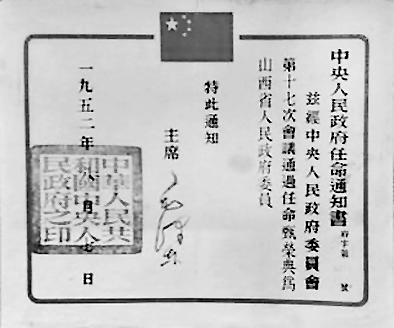 中央人民政府任命通知書
府字第　號
茲經中央人民政府委員會
第十七次會議通過任命甄榮典爲
山西省人民政府委員
特此通知
主席
毛澤東
一九五二年八月七日
中華人民共
和國中央人
民政府之印